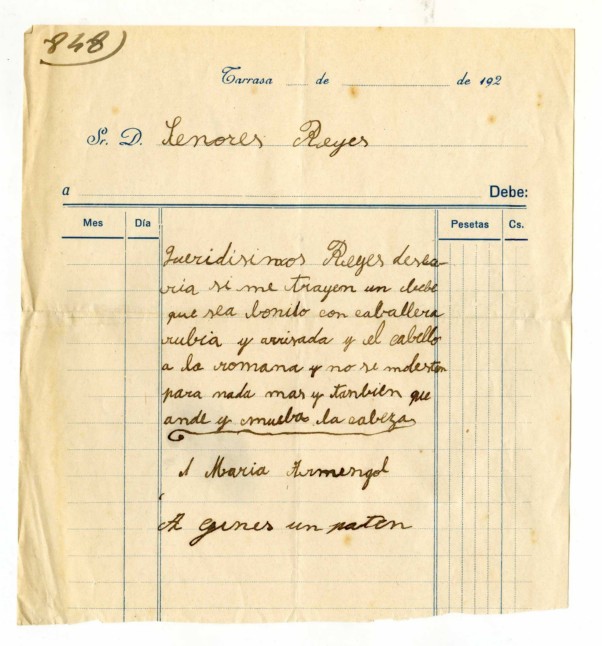 848)
Tarrasa de de 192
Sr. D. Senores Reyes
a Debe:
Mes Día Pesetas Cs.
Queridisimos Reyes desea-
ria si me trayen un bebe
que sea bonito con caballera
rubia y arrisada y el cabello
a la romana y no se molesten
para nada mas y tanbien que
ande y mueba la cabeza
A Maria Armengol
A Gines un paten